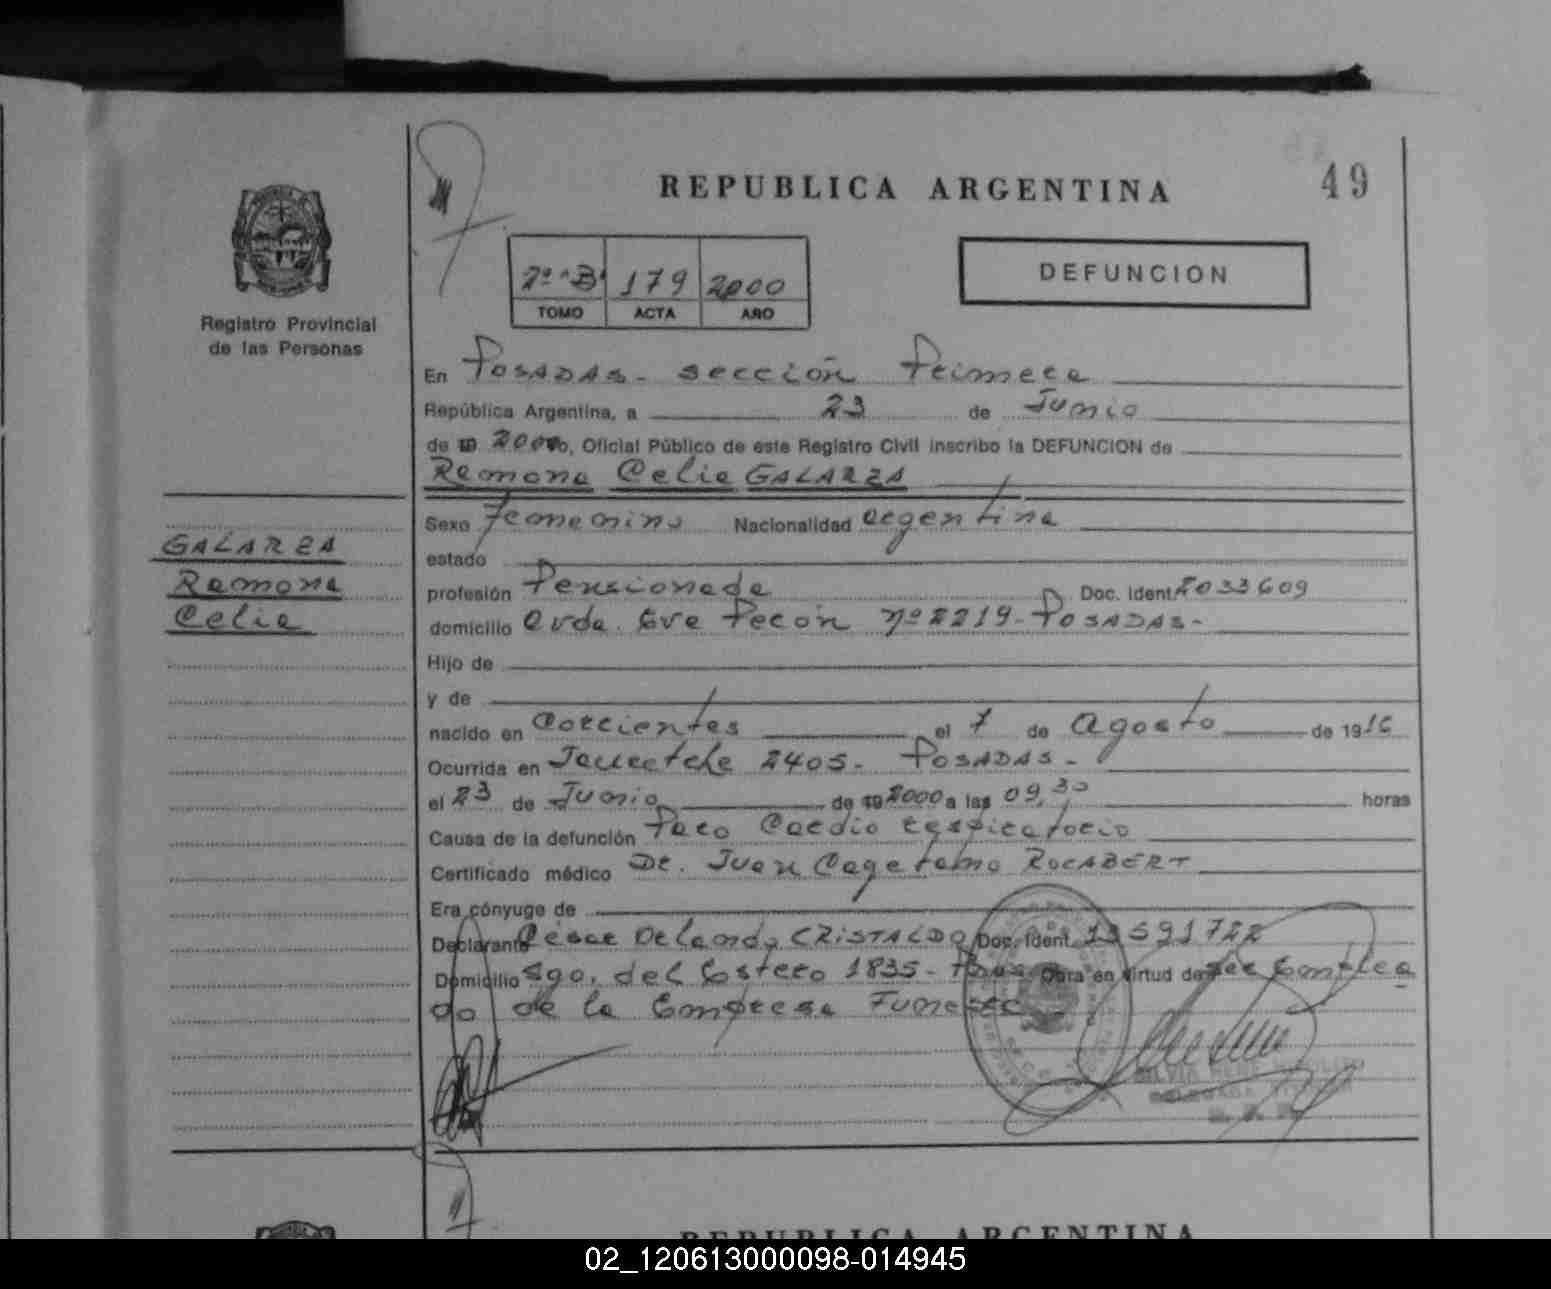 REPUBLICA ARGENTINA
49
2º "B" 179 2000
TOMO ACTA AÑO
DEFUNCION
Registro Provincial
de las Personas
En POSADAS - sección Primera
República Argentina, a 23 de Junio
de 19 2000 yo, Oficial Público de este Registro Civil inscribo la DEFUNCION de
Ramona Celia GALARZA
Sexo Femenino Nacionalidad argentina
GALARZA
Ramona
Celia
estado
profesión Pensionada Doc. Ident. 2033609
domicilio Avda. Eva Perón nº 2219 - POSADAS -
Hijo de
y de
nacido en Corrientes el 7 de Agosto de 1916
Ocurrida en Jauretche 2405 - POSADAS -
el 23 de Junio de 19 2000 a las 09,30 horas
Causa de la defunción Paro Cardio respiratorio
Certificado médico Dr. Juan Cayetano ROCABERT
Era cónyuge de
Declarante César Orlando CRISTALDO Doc. Ident. 13591722
Domicilio Sgo. del Estero 1835 - Pdas Obra en virtud de ser Emplea
do de la Empresa Funeser
REPUBLICA ARGENTINA
02_120613000098-014945